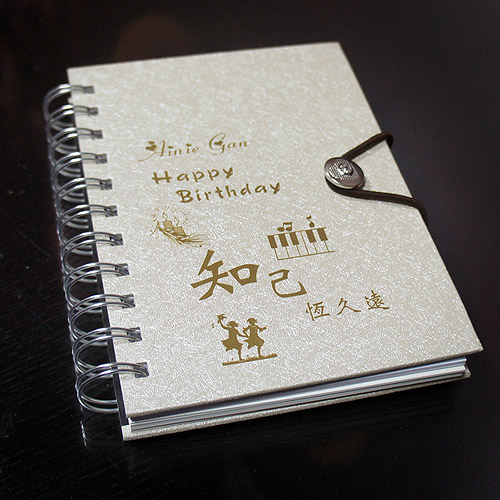 Ainie Gan
Happy
Birthday
知己
恆久遠